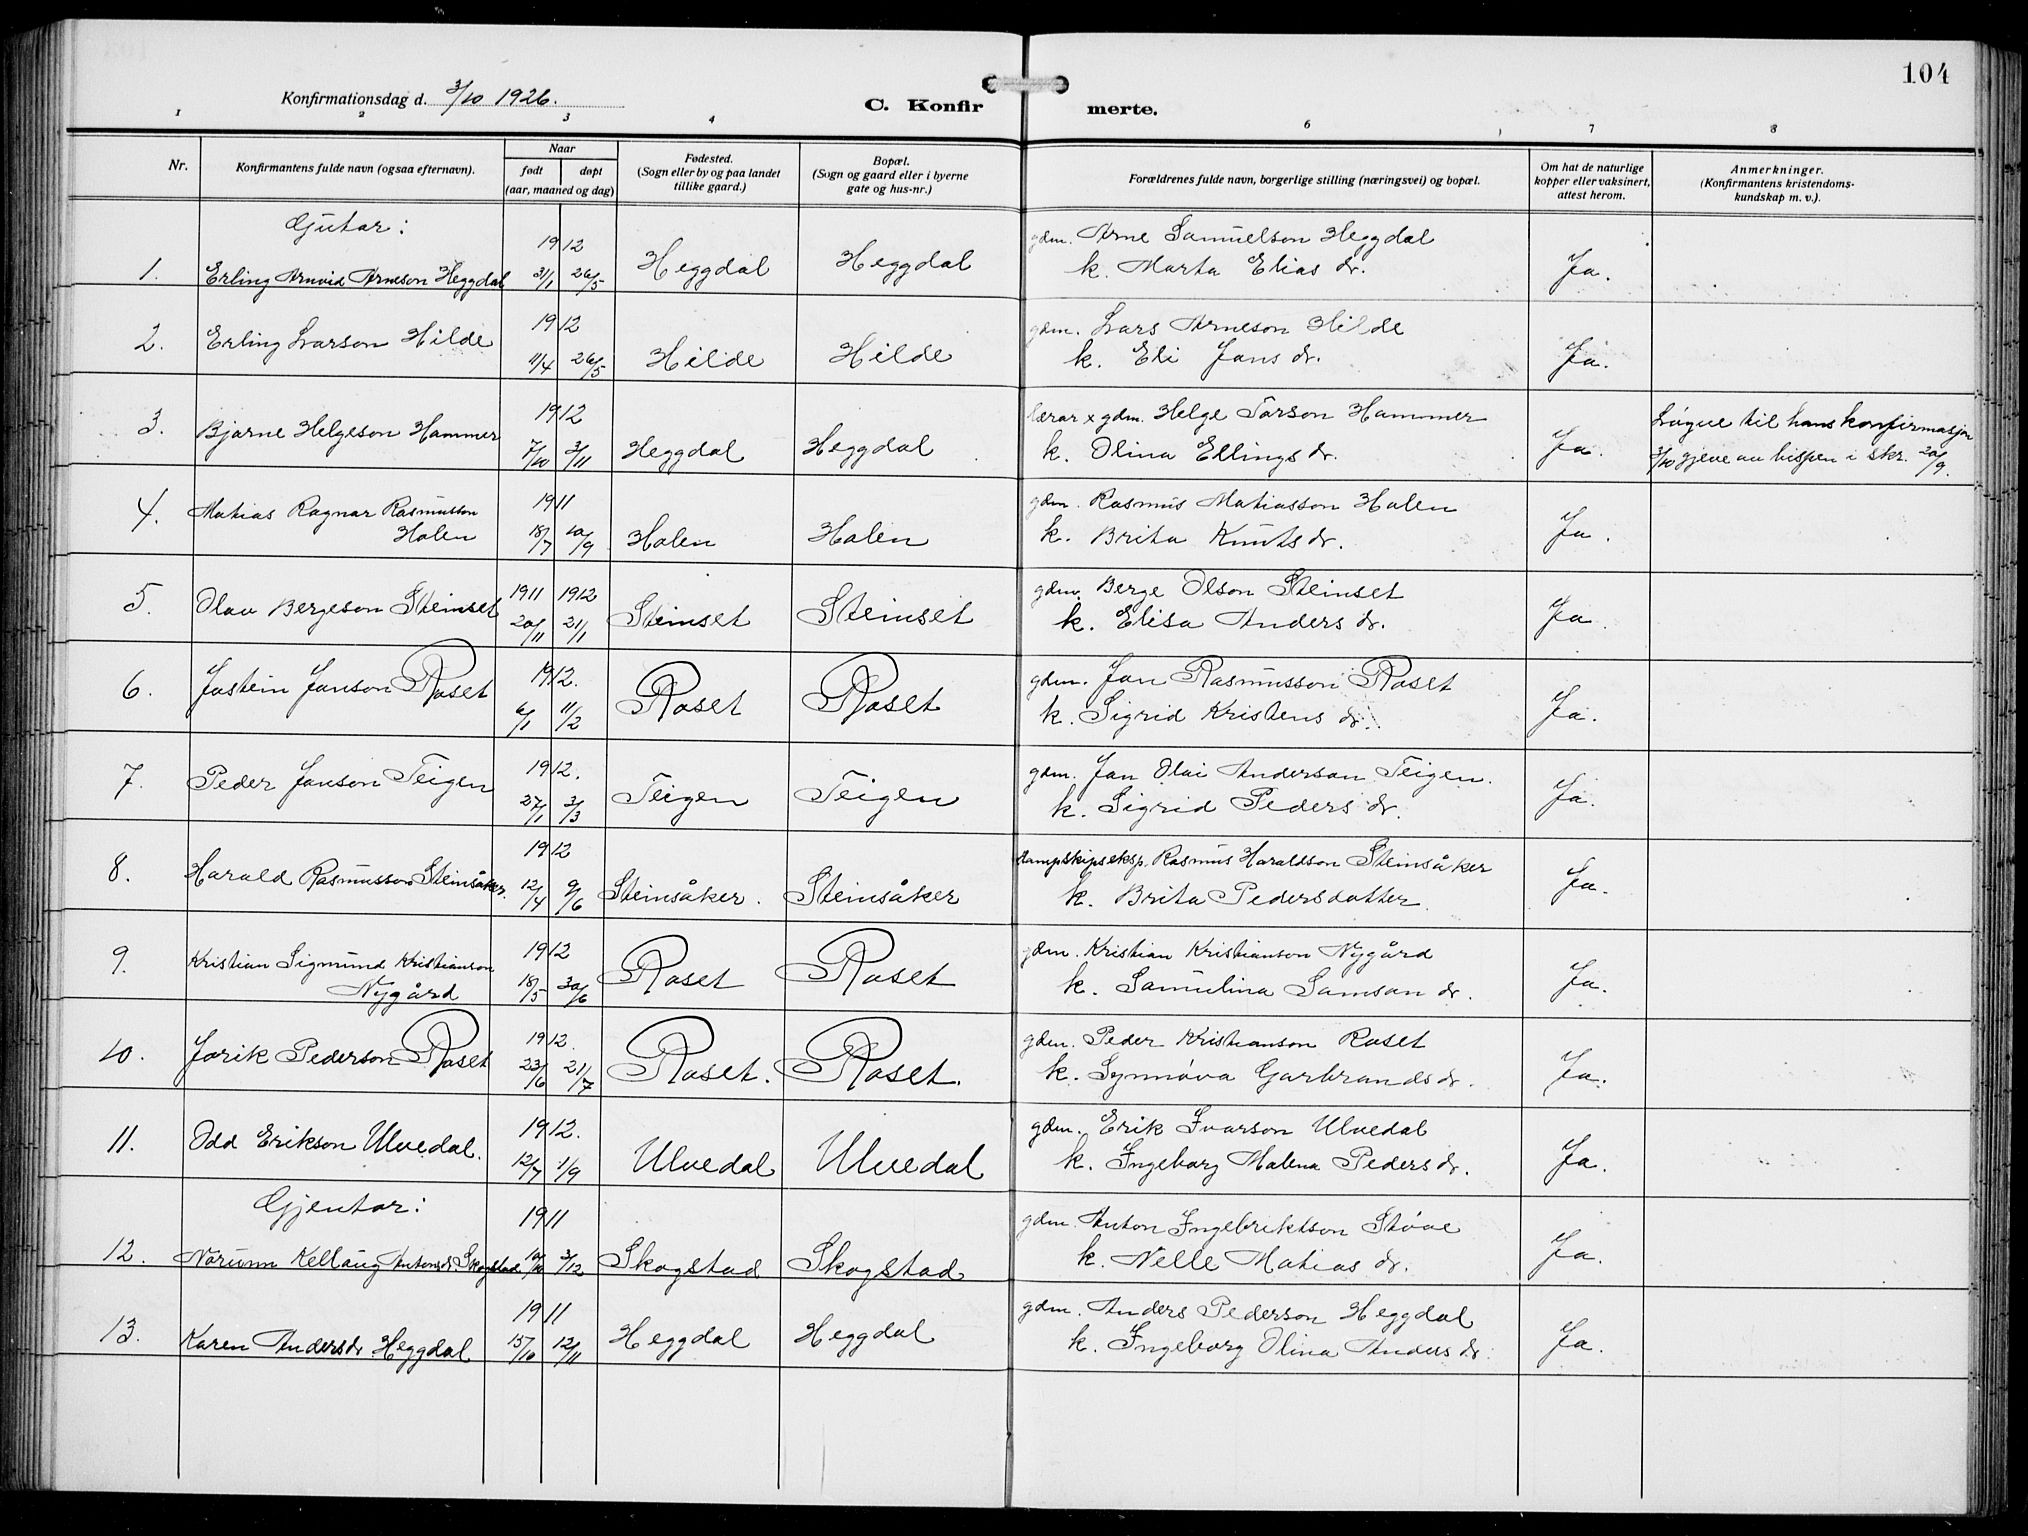 104
Konfirmationsdag d. 3/10 1926.
C. Konfirmerte.
1 2 3 4 6 7 8
Nr.
Konfirmantens fulde navn (ogsaa efternavn).
Naar
født døpt
(aar, maaned og dag)
Fødested.
(Sogn eller by og paa landet
tillike gaard.)
Bopæl.
(Sogn og gaard eller i byerne
gate og hus-nr.)
Forældrenes fulde navn, borgerlige stilling (næringsvei) og bopæl.
Om hat de naturlige
kopper eller vaksinert,
attest herom.
Anmerkninger.
(Konfirmantens kristendoms-
kundskap m. v.).
Gutar:
1912 gdm. Arne Samuelson Heggdal
1. Erling Arnvid Arneson Heggdal 31/1 26/5 Heggdal Heggdal k. Marta Elias dr. Ja.
1912 gdm. Lars Arneson Hilde
2. Erling Larson Hilde 11/4 26/5 Hilde Hilde k. Eli Jans dr. Ja.
1912 lærar x gdm. Helge Tarson Hammer Løyve til hans konfirmasjon
3. Bjarne Helgeson Hammer 7/10 3/11 Heggdal Heggdal k. Olina Ellings dr. Ja. 3/10 gjeve av bispen i skr. 20/9.
4. Matias Ragnar Rasmusson 1911 gdm. Rasmus Matiasson Halen
Halen 18/7 10/9 Halen Halen k. Brita Knuts dr. Ja.
1911 1912 gdm. Berge Olson Steinset
5. Olav Bergeson Steinset 20/11 21/1 Steinset Steinset k. Elisa Anders dr. Ja.
1912. gdm. Jan Rasmusson Raset
6. Jastein Janson Raset 6/1 11/2 Raset Raset k. Sigrid Kristens dr. Ja.
1912. gdm. Jan Olai Anderson Teigen.
7. Peder Janson Teigen 27/1 3/3 Teigen Teigen k. Sigrid Peders dr. Ja.
1912 dampskipseksp. Rasmus Haraldson Steinsåker
8. Harald Rasmusson Steinsåker. 12/4 9/6 Steinsåker. Steinsåker k. Brita Pedersdatter Ja.
9. Kristian Sigmund Kristianson 1912 gdm. Kristian Kristianson Nygård
Nygård 18/5 30/6 Raset Raset k. Samulina Samson dr. Ja.
1912. gdm. Peder Kristianson Raset
10. Jarik Pederson Raset 23/6 21/7 Raset. Raset. k. Synnøva Garbrands dr. Ja.
1912. gdm. Erik Ivarson Ulvedal
11. Odd Erikson Ulvedal. 12/7 1/9 Ulvedal Ulvedal k. Ingeborg Malena Peders dr. Ja.
Gjentar:
1911 gdm. Anton Ingebriktson Støve
12. Norunn Kellaug Antonsdr. Skogstad 10/10 3/12 Skogstad Skogstad k. Nelle Matias dr. Ja.
1911 gdm. Anders Pederson Heggdal
13. Karen Andersdr. Heggdal 15/10 12/11 Heggdal Heggdal k. Ingeborg Olina Anders dr. Ja.